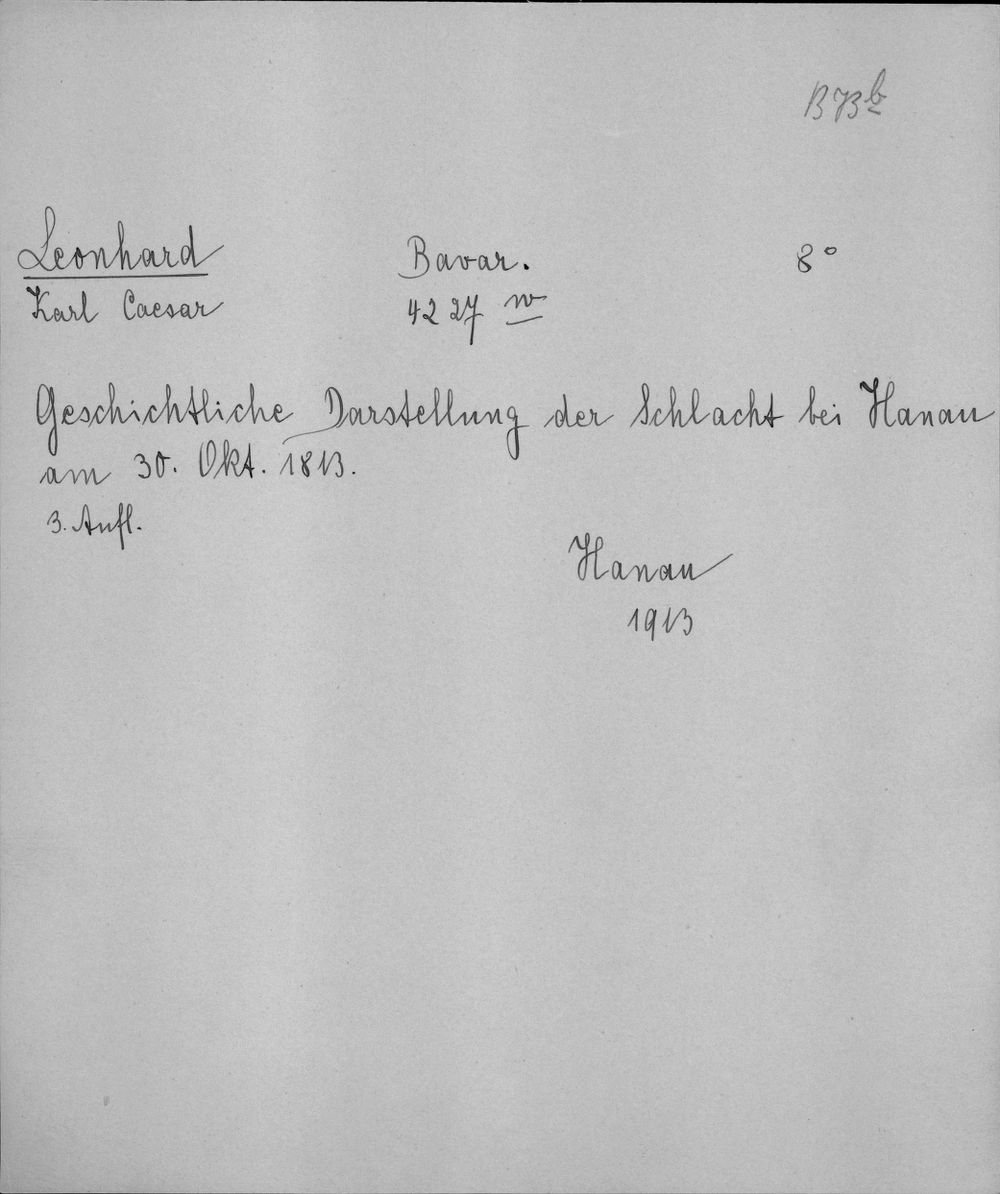 B 73 b
Leonhard Bavar. 8°
Karl Caesar 4227 w
Geschichtliche Darstellung der Schlacht bei Hanau
am 30. Okt. 1813.
3. Aufl.
Hanau
1913